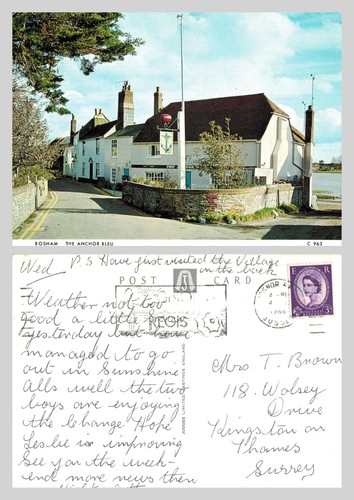 BOSHAM THE ANCHOR BLEU
C 963
Wed P.S Have just visited the Village
on the back
POST CARD
Weather not too
good a little
Yesterday but have
managed to go
out in Sunshine
Alls well the two
boys are enjoying
the Change Hope
Leslie is improving
See you the week-
end more news then
REGIS
Mrs T. Brown
118. Wolsey
Drive
Kingston on
Thames
Surrey